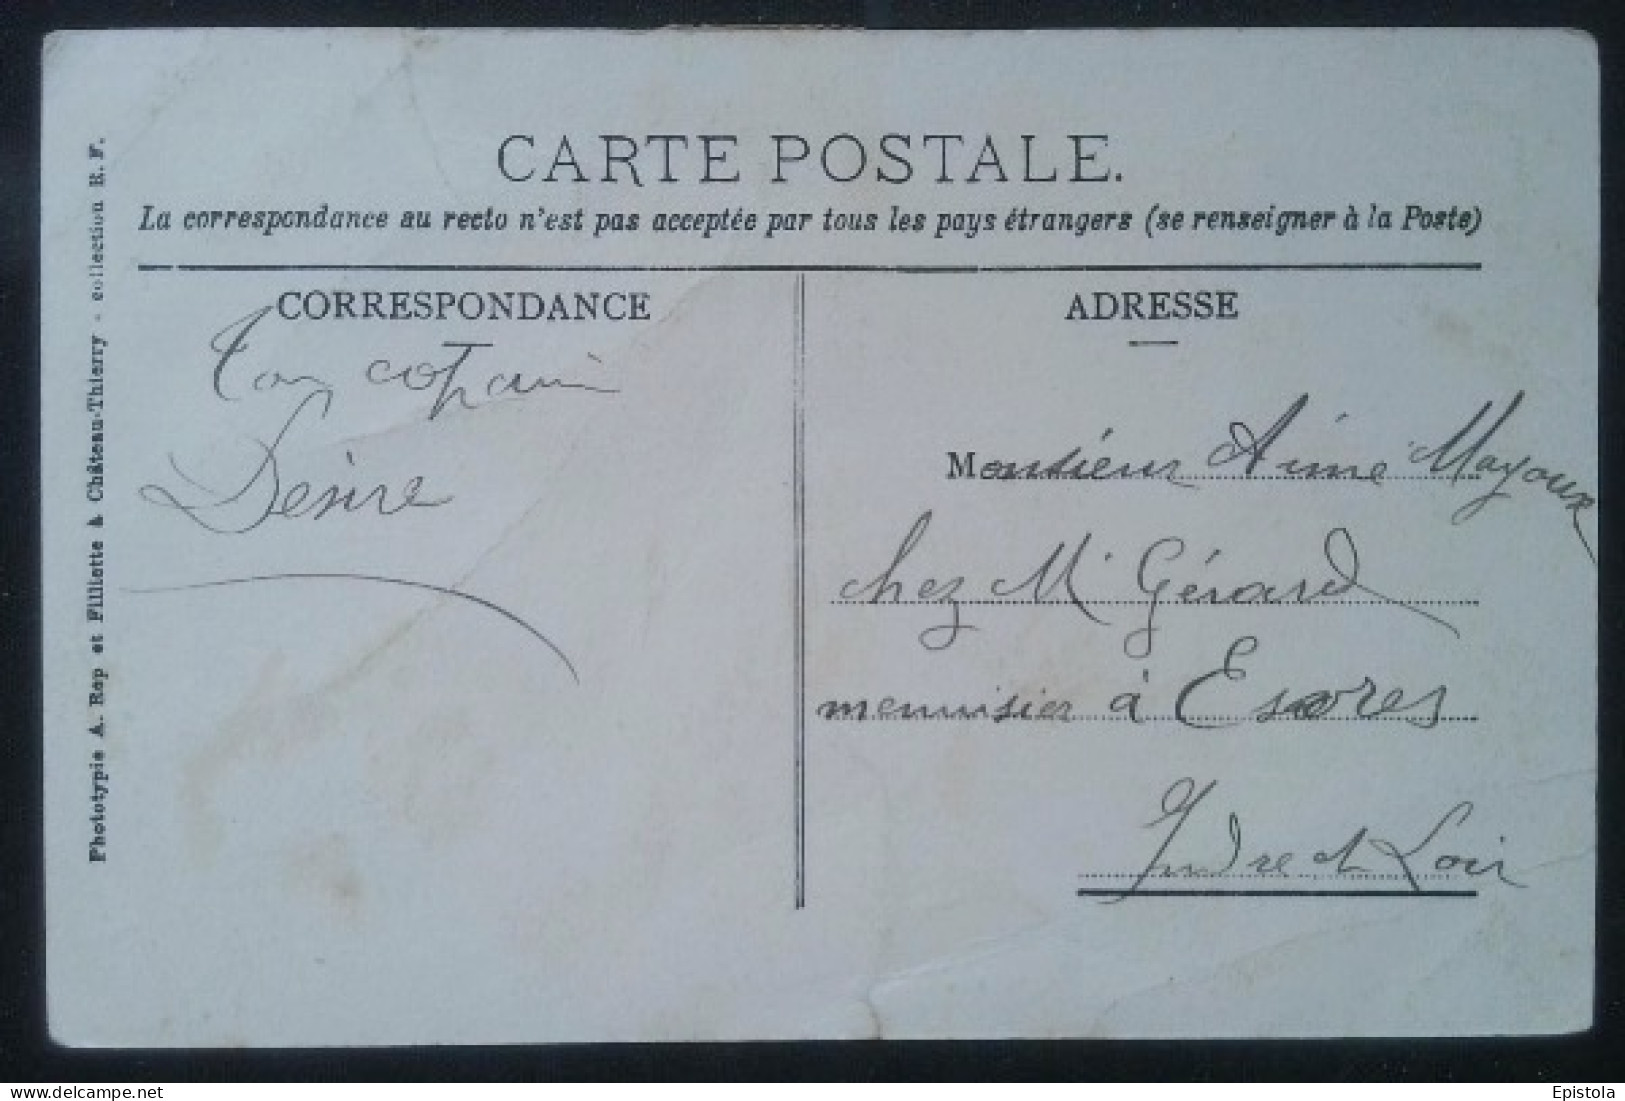 CARTE POSTALE.
La correspondance au recto n'est pas acceptée par tous les pays étrangers (se renseigner à la Poste)
Phototypie A. Rep et Filliette à Château-Thierry - collection R. F.
CORRESPONDANCE
Ton copain
Désiré
ADRESSE
Monsiéur Aimé Mayoux
chez Mr Gérard
menuisier à Esvres
Indre et Loir
www.delcampe.net
Epistola